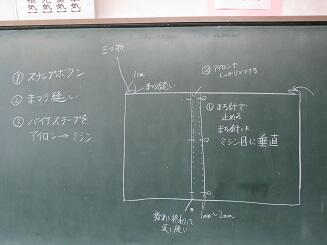 三つ折
① スナップボタン
② まつり縫い
③ バイアステープを
アイロン→ミシン
1cm
まつり縫い
② アイロンで
しっかりとする
① まち針で
止める
まち針は
ミシン目に垂直
返し縫い
1mm〜2mm